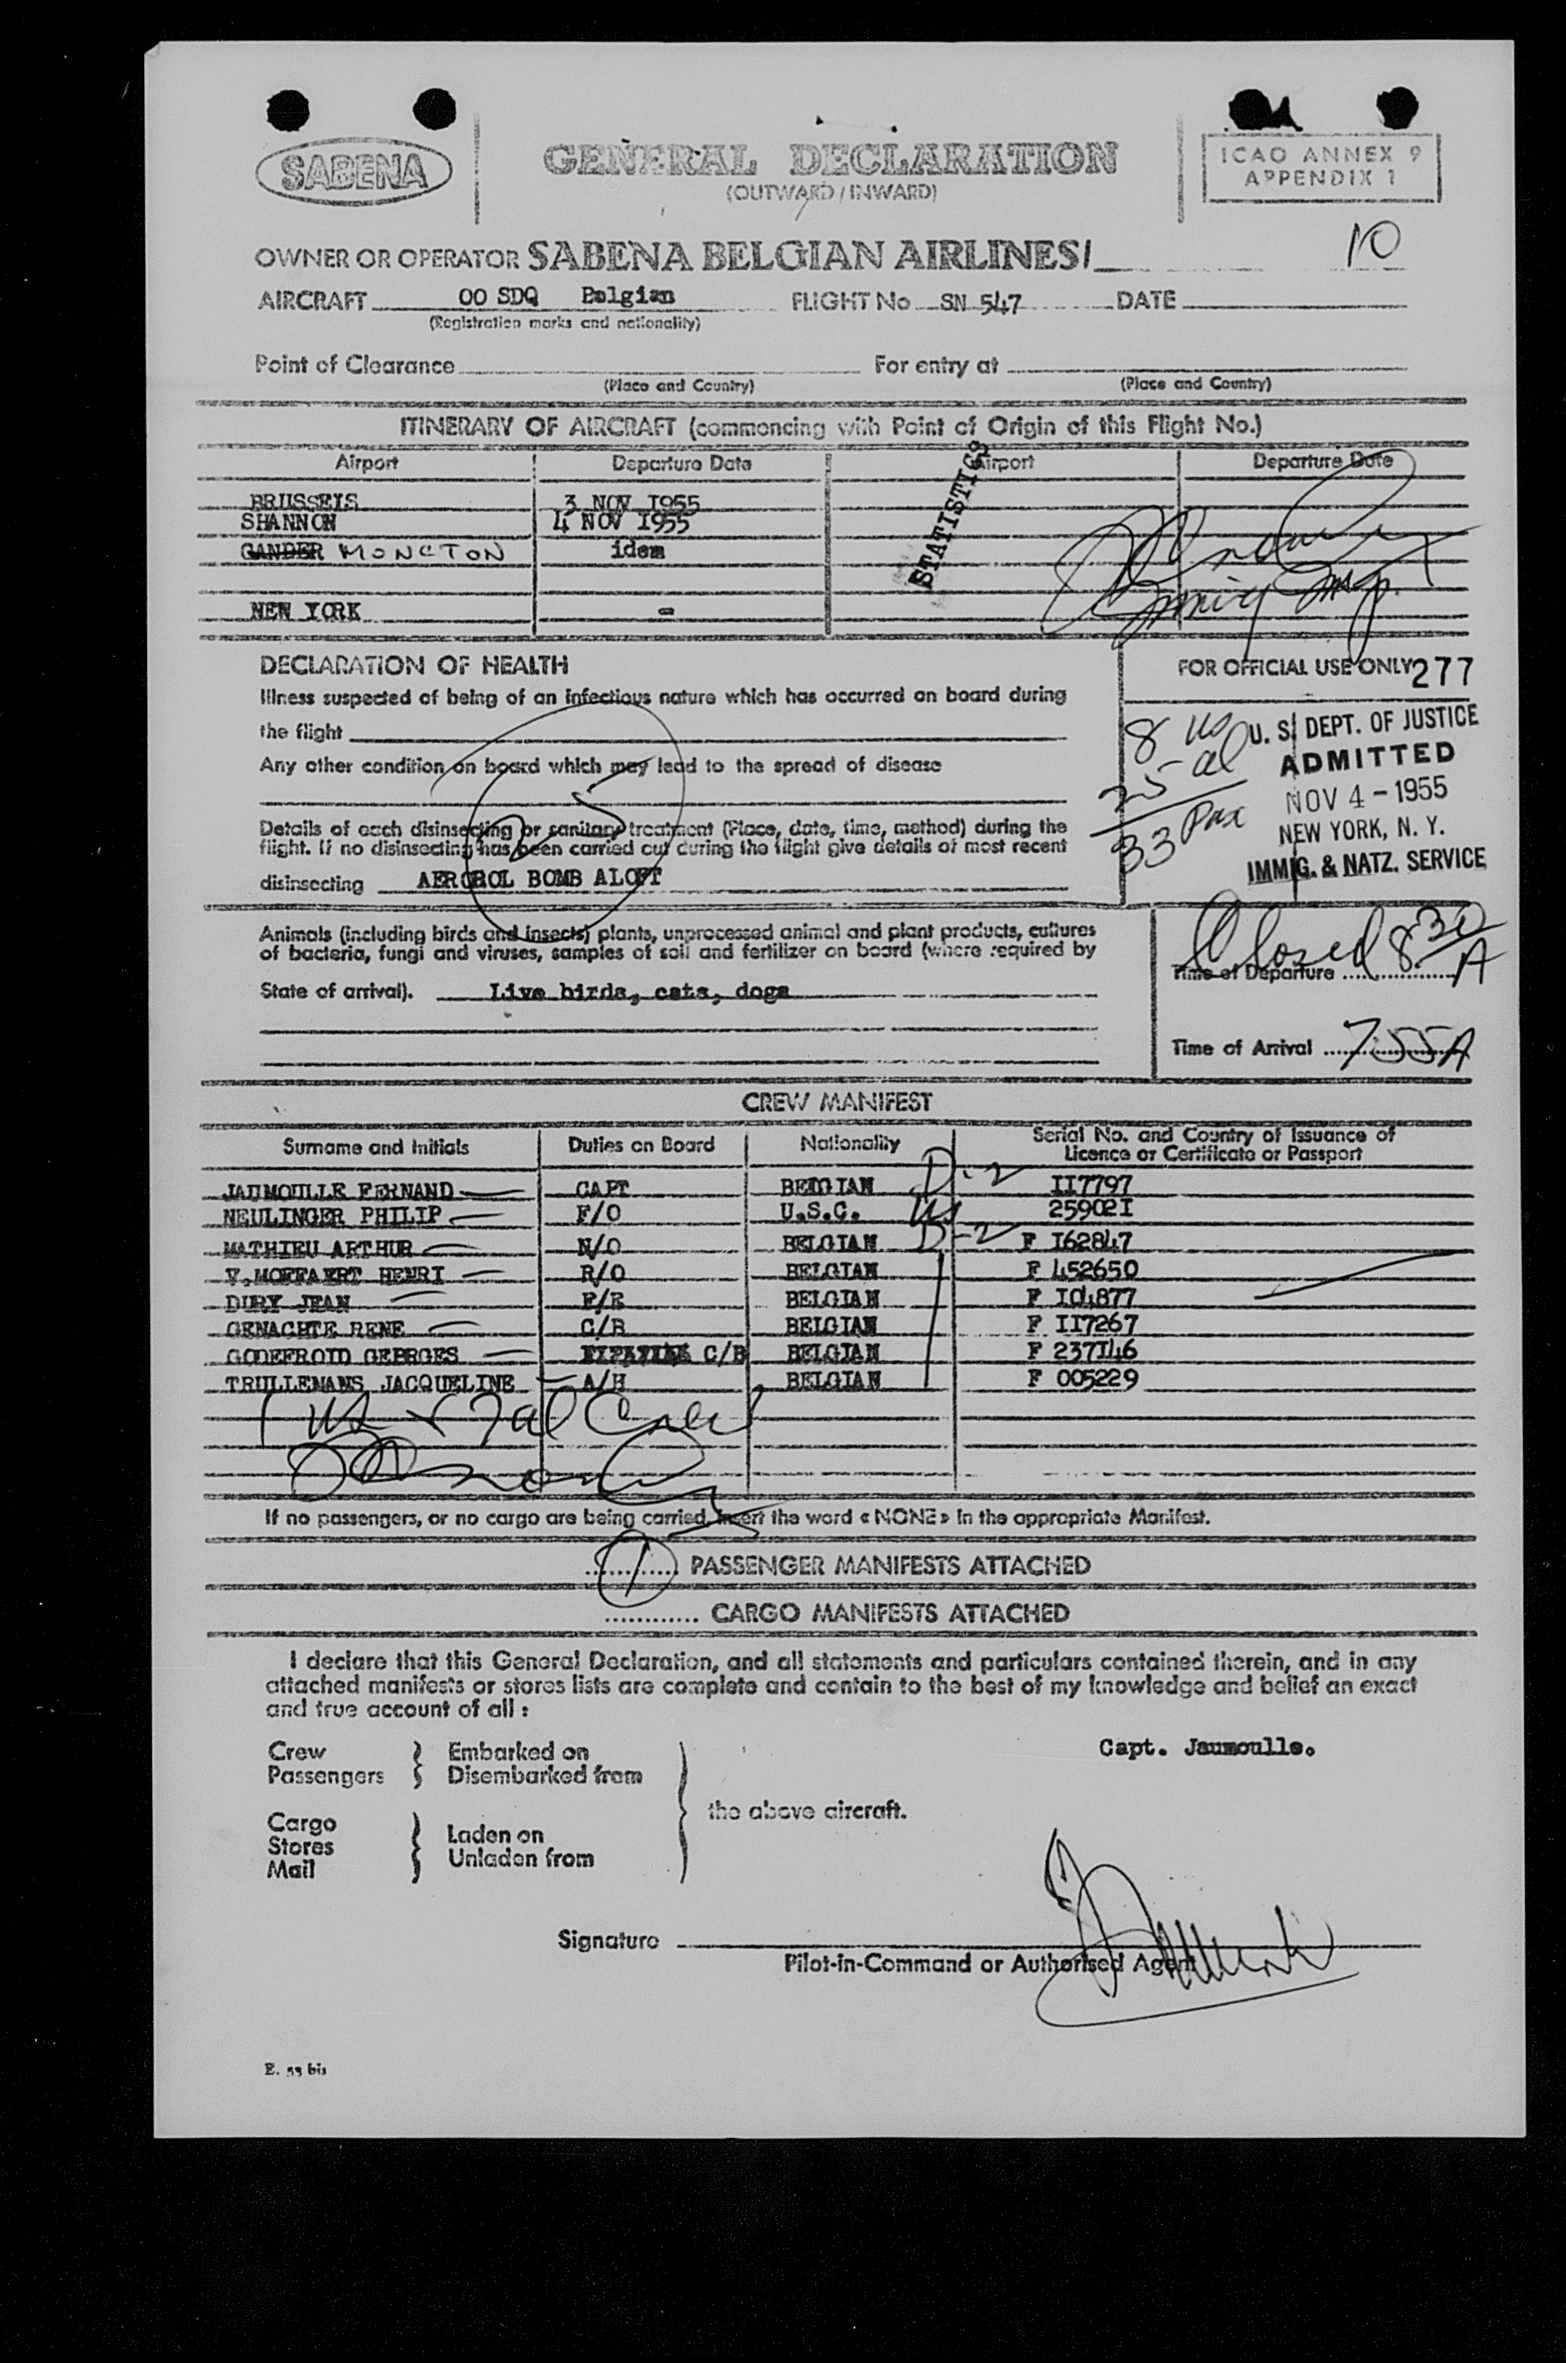 SABENA
GENERAL DECLARATION
(OUTWARD / INWARD)
ICAO ANNEX 9
APPENDIX 1
10
OWNER OR OPERATOR SABENA BELGIAN AIRLINES/
AIRCRAFT OO SDQ Belgian FLIGHT No SN 547 DATE
(Registration marks and nationality)
Point of Clearance For entry at
(Place and Country) (Place and Country)
ITINERARY OF AIRCRAFT (commencing with Point of Origin of this Flight No.)
Airport Departure Date Airport Departure Date
STATISTICS
BRUSSELS 3 NOV I955
SHANNON 4 NOV I955
GANDER MONCTON idem
NEW YORK -
DECLARATION OF HEALTH
FOR OFFICIAL USE ONLY 277
Illness suspected of being of an infectious nature which has occurred on board during
the flight
Any other condition on board which may lead to the spread of disease
Details of each disinsecting or sanitary treatment (Place, date, time, method) during the
flight. If no disinsecting has been carried out during the flight give details of most recent
disinsecting AEROBOL BOMB ALOFT
8 us
25 al
33 Pax
U. S. DEPT. OF JUSTICE
ADMITTED
NOV 4 - 1955
NEW YORK, N. Y.
IMMIG. & NATZ. SERVICE
Animals (including birds and insects) plants, unprocessed animal and plant products, cultures
of bacteria, fungi and viruses, samples of soil and fertilizer on board (where required by
State of arrival). Live birds, cats, dogs
Closed 8 30 A
Time of Departure
Time of Arrival 755A
CREW MANIFEST
Surname and Initials Duties on Board Nationality Serial No. and Country of Issuance of
Licence or Certificate or Passport
JAUMOULLE FERNAND CAPT BELGIAN D-2 II7797
NEULINGER PHILIP F/O U.S.C. us 25902I
MATHIEU ARTHUR N/O BELGIAN D-2 F I62847
V.MOFFAERT HENRI R/O BELGIAN F 452650
DIRY JEAN F/E BELGIAN F I04877
GENACHTE RENE C/B BELGIAN F II7267
GODEFROID GEORGES C/B BELGIAN F 237I46
TRULLEMANS JACQUELINE A/H BELGIAN F 005229
1 us + 7 al Crew
If no passengers, or no cargo are being carried, insert the word « NONE » in the appropriate Manifest.
1 PASSENGER MANIFESTS ATTACHED
............ CARGO MANIFESTS ATTACHED
I declare that this General Declaration, and all statements and particulars contained therein, and in any
attached manifests or stores lists are complete and contain to the best of my knowledge and belief an exact
and true account of all :
Crew Embarked on
Passengers Disembarked from
Capt. Jaumoulle.
the above aircraft.
Cargo
Stores Laden on
Mail Unladen from
Signature
Pilot-in-Command or Authorised Agent
E. 53 bis